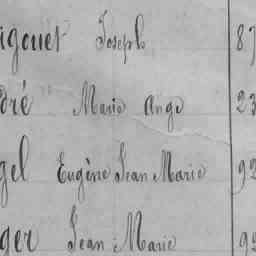 igouet Joseph 87
dré Marie Ange 23
gel Eugène Jean Marie 92
ger Jean Marie 92